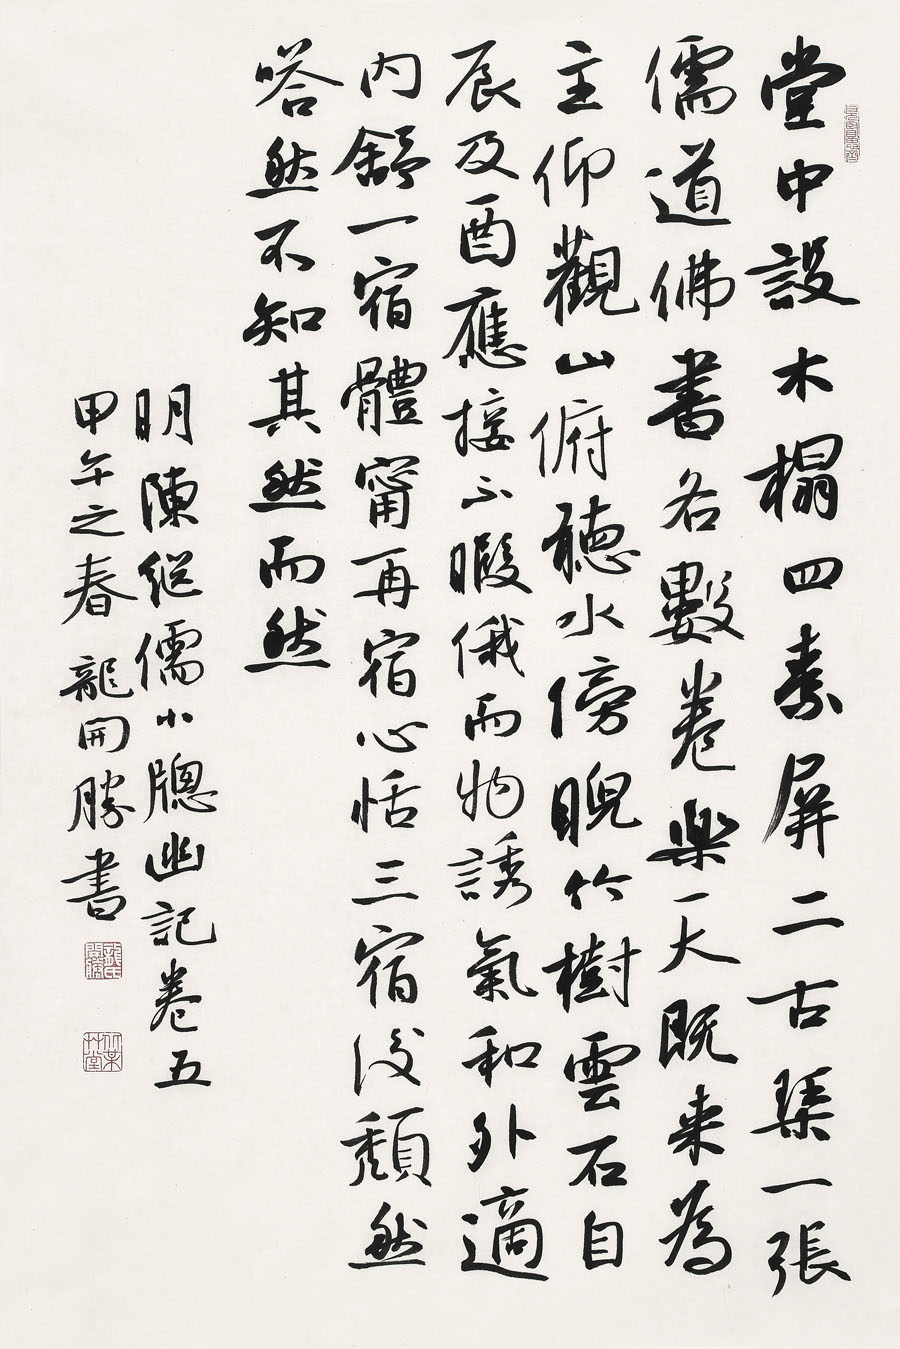 堂中設木榻四素屏二古琴一張
儒道佛書各數卷樂天既来為
主仰觀山俯聽水傍睨竹樹雲石自
辰及酉應接不暇俄而物誘氣和外適
内舒一宿體甯再宿心恬三宿後頽然
嗒然不知其然而然
明陳继儒小牕幽記卷五
甲午之春龍開勝書